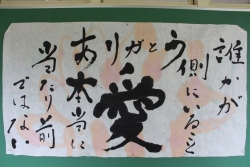 誰かが
側にいること
本当に
当たり前
ではない
ありがとう
愛